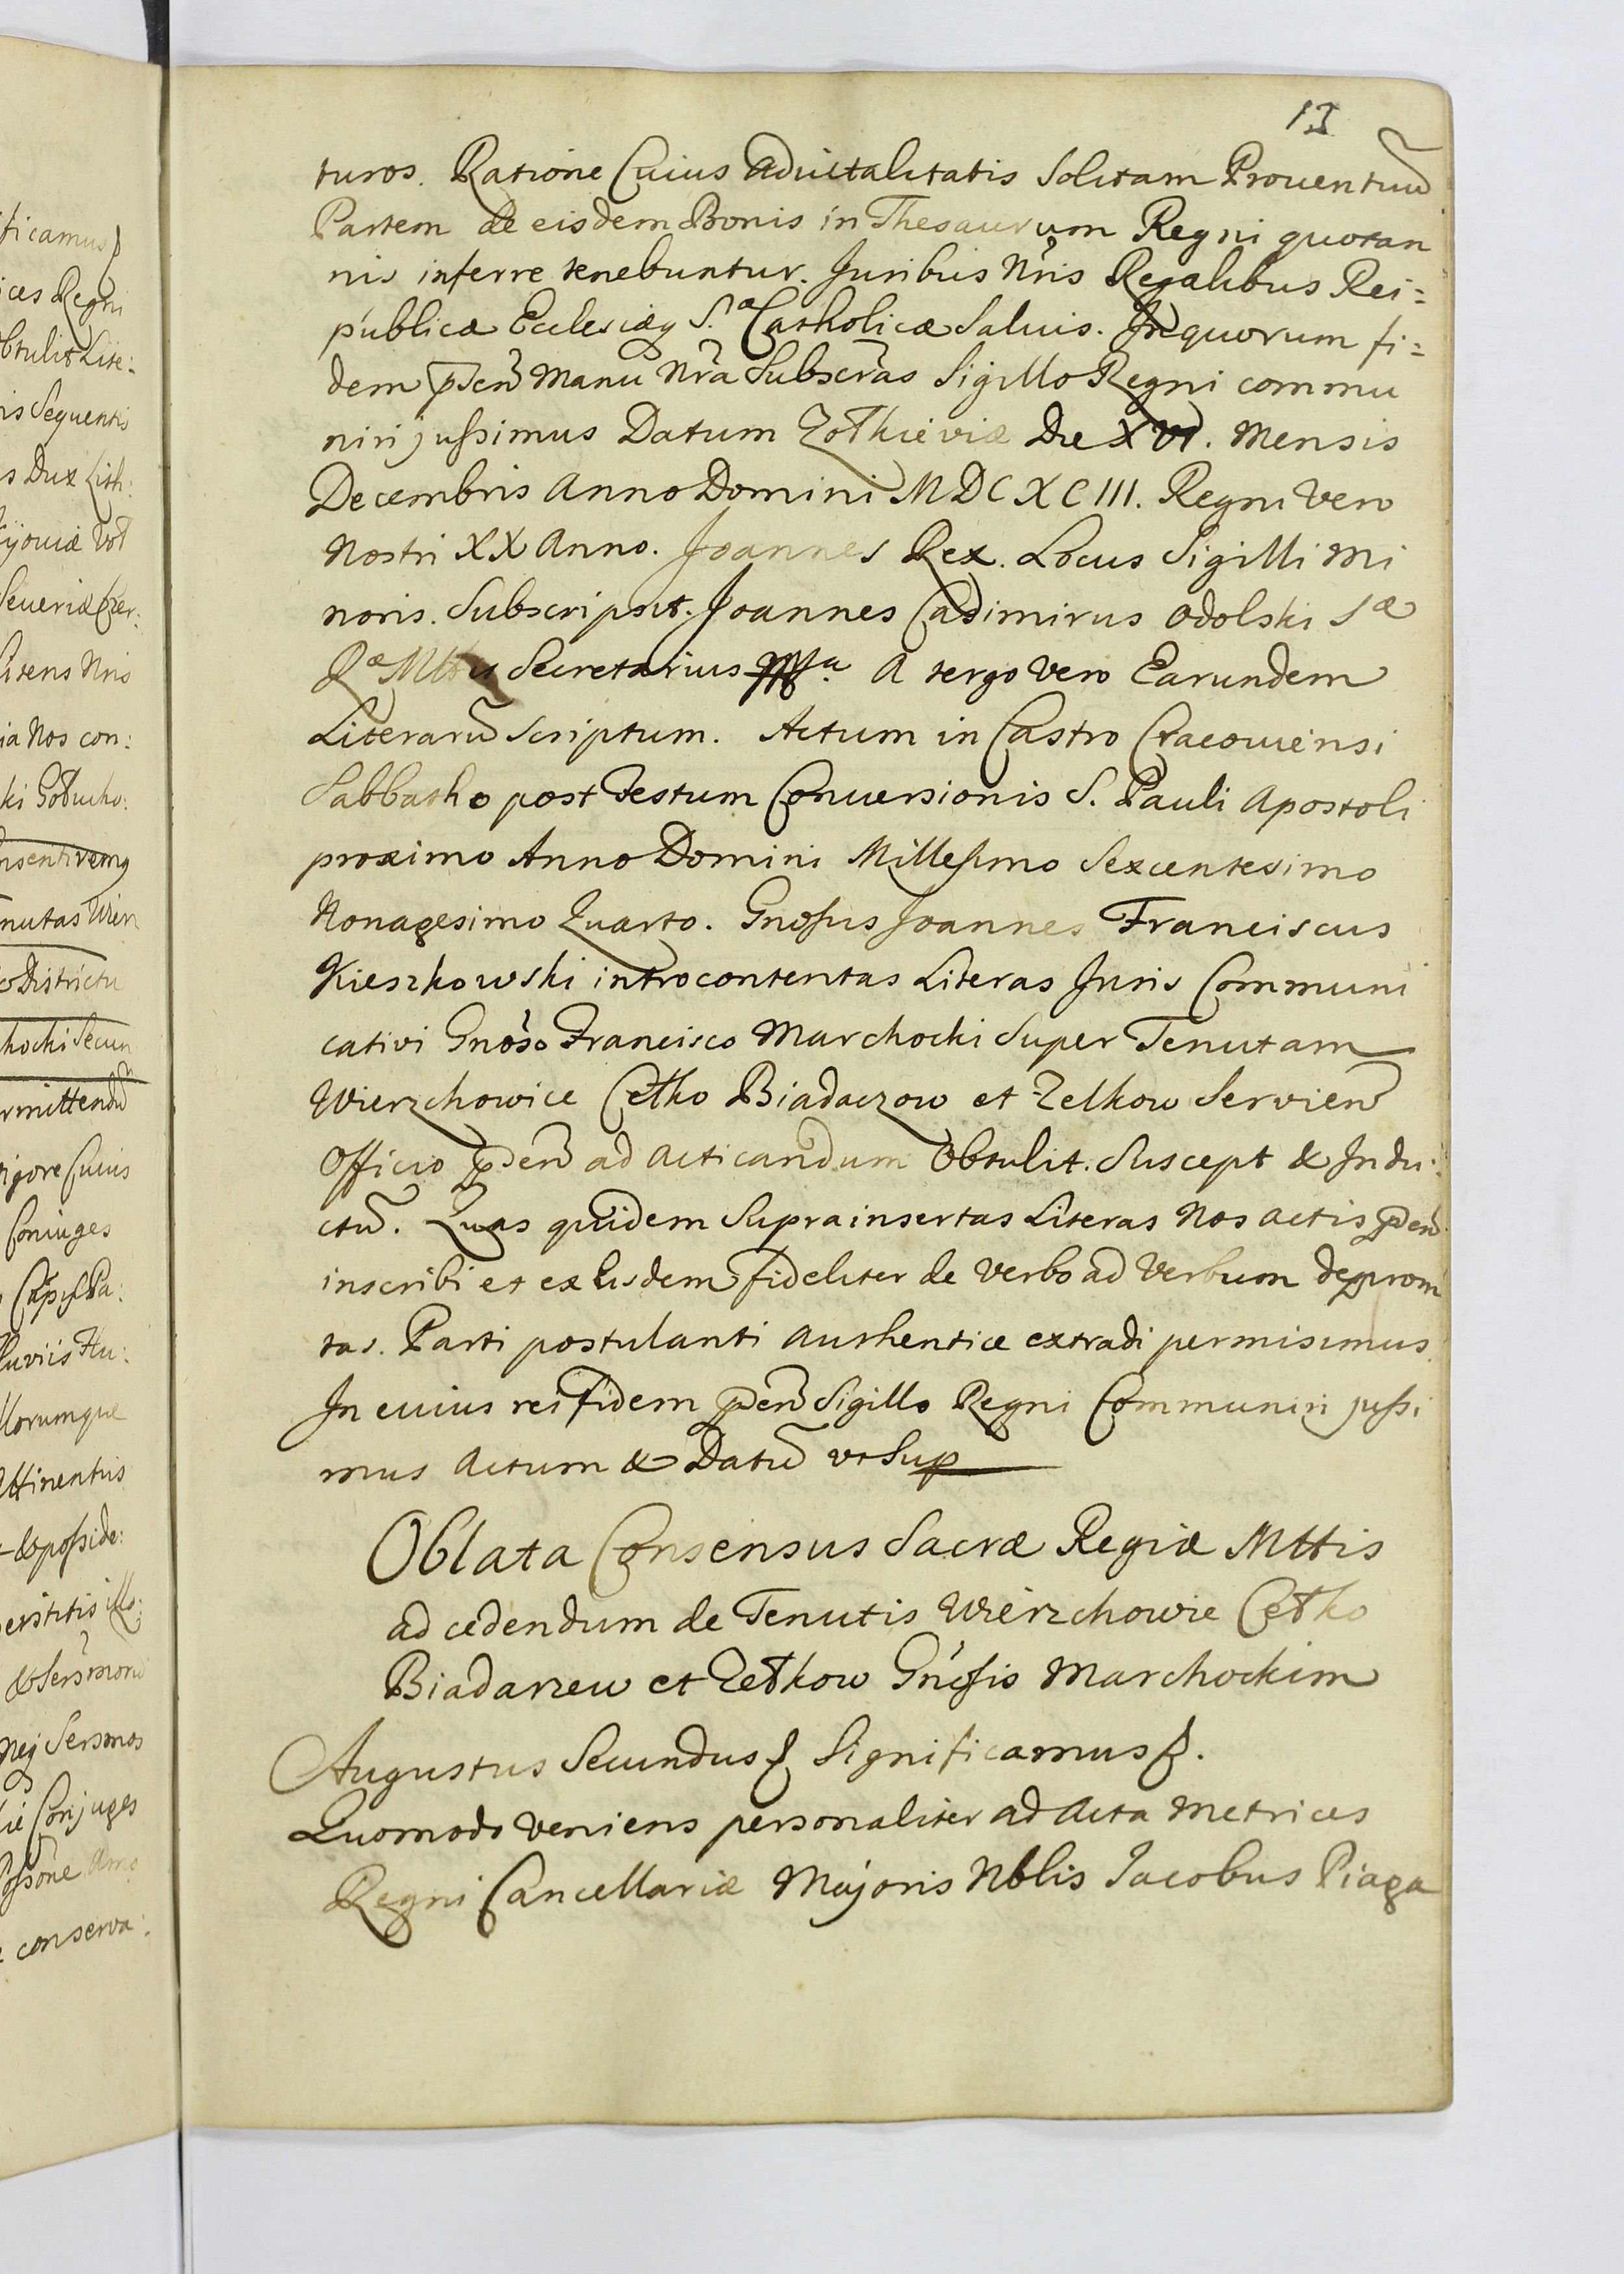 13
turos. Ratione Cuius advitalitatis Solitam Prouentuũ
Partem de eisdem Bonis in Thesaurum Regni quotan
nis inferre tenebuntur. Juribus Nr̃is Regalibus Rei=
publicæ Ecclesiæq S.æ Catholicæ Saluis. In quorum fi=
dem p̃sen̄ Manu Nr̃a Subscr̃as Sigillo Regni commu
niri jussimus Datum Żołkieviæ Die XVI. Mensis
Decembris Anno Domini MDCXCIII. Regni Vero
Nostri XX Anno. Joannes Rex. Locus Sigilli Mi
noris. Subscripsit. Joannes Casimirus Odolski Sæ
Ræ Mttis Secretarius A tergo Vero Earundem
Literarũ scriptum. Actum in Castro Cracouiensi
Sabbatho post Festum Conuersionis S. Pauli Apostoli
proximo Anno Domini Millesimo Sexcentesimo
Nonagesimo Quarto. Gnosus Joannes Franciscus
Kieszkowski introcontentas Literas Juris Communi
cativi Gnoso Francisco Marchocki Super Tenutam
Wierzchowice Cełko Biadaczow et Zelkow Servien̄
Officio p̃sen̄ ad acticandum Obtulit. Suscept & Indu:
ctũ. Quas quidem Suprainsertas Literas Nos actis p̃sen̄
inscribi et ex Iisdem fideliter de Verbo ad Verbum deprom
tas. Parti postulanti authentice extradi permisimus.
In cuius rei fidem p̃sen̄ Sigillo Regni Communiri jussi
mus Actum & Datũ vt Sup
Oblata Consensus Sacræ Regiæ Mttis
ad cedendum de Tenutis Wierzchowie Cełko
Biadarzew et Zełkow Gnosis Marchockim
Augustus Secundus Significamus
Quomodo Veniens personaliter ad Acta Metrices
Regni Cancellariæ Majoris Nblis Jacobus Piaga